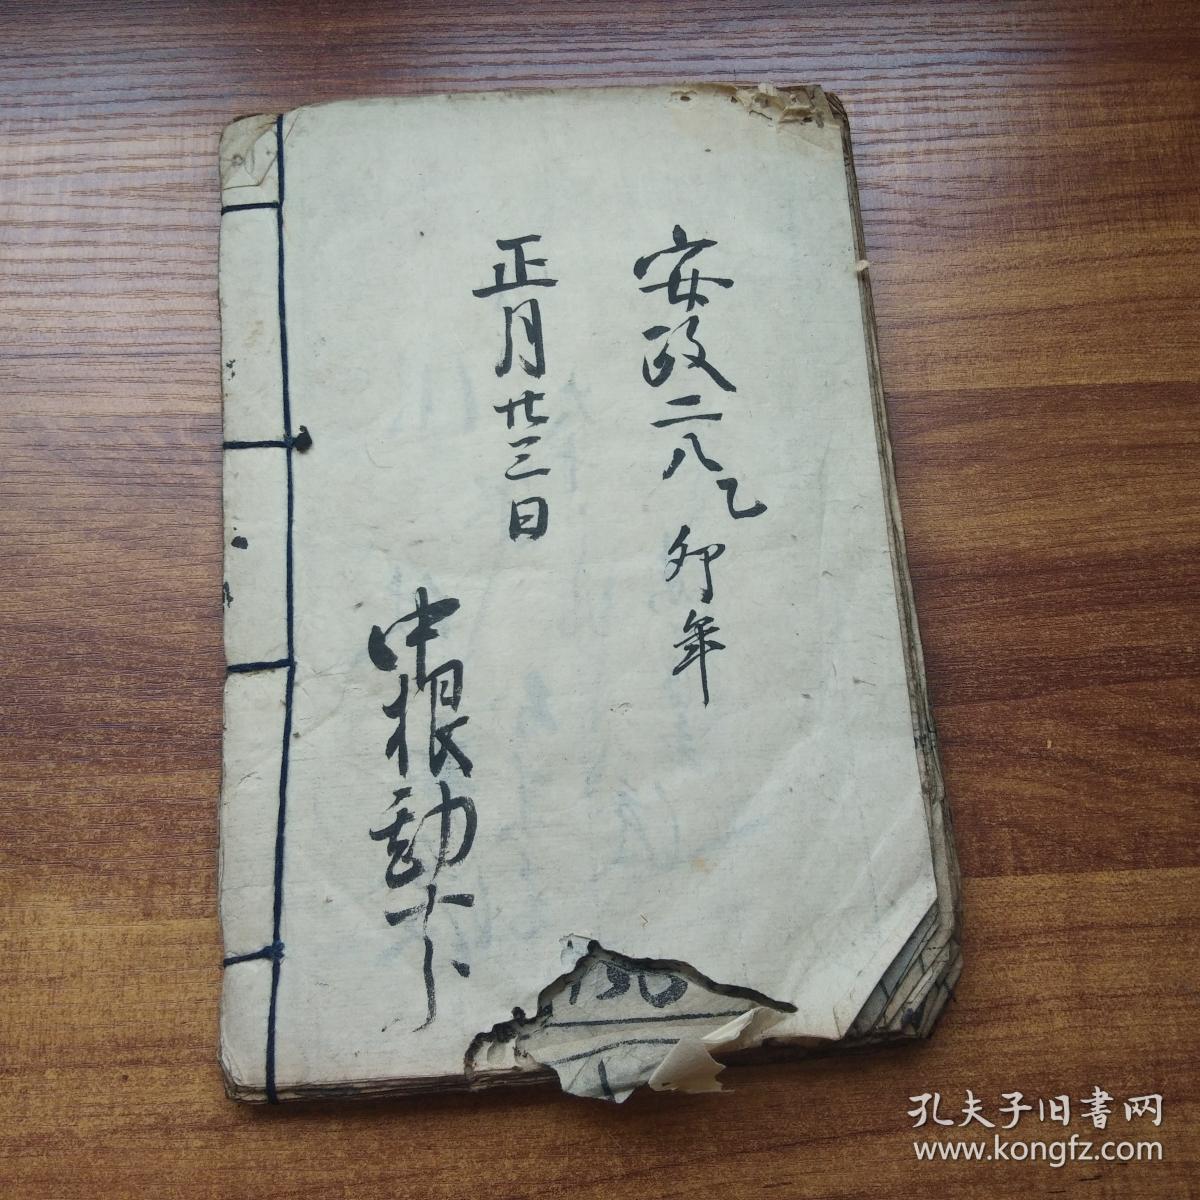 安政二八乙卯年
正月廿三日
中根勘
孔夫子旧書网
www.kongfz.com